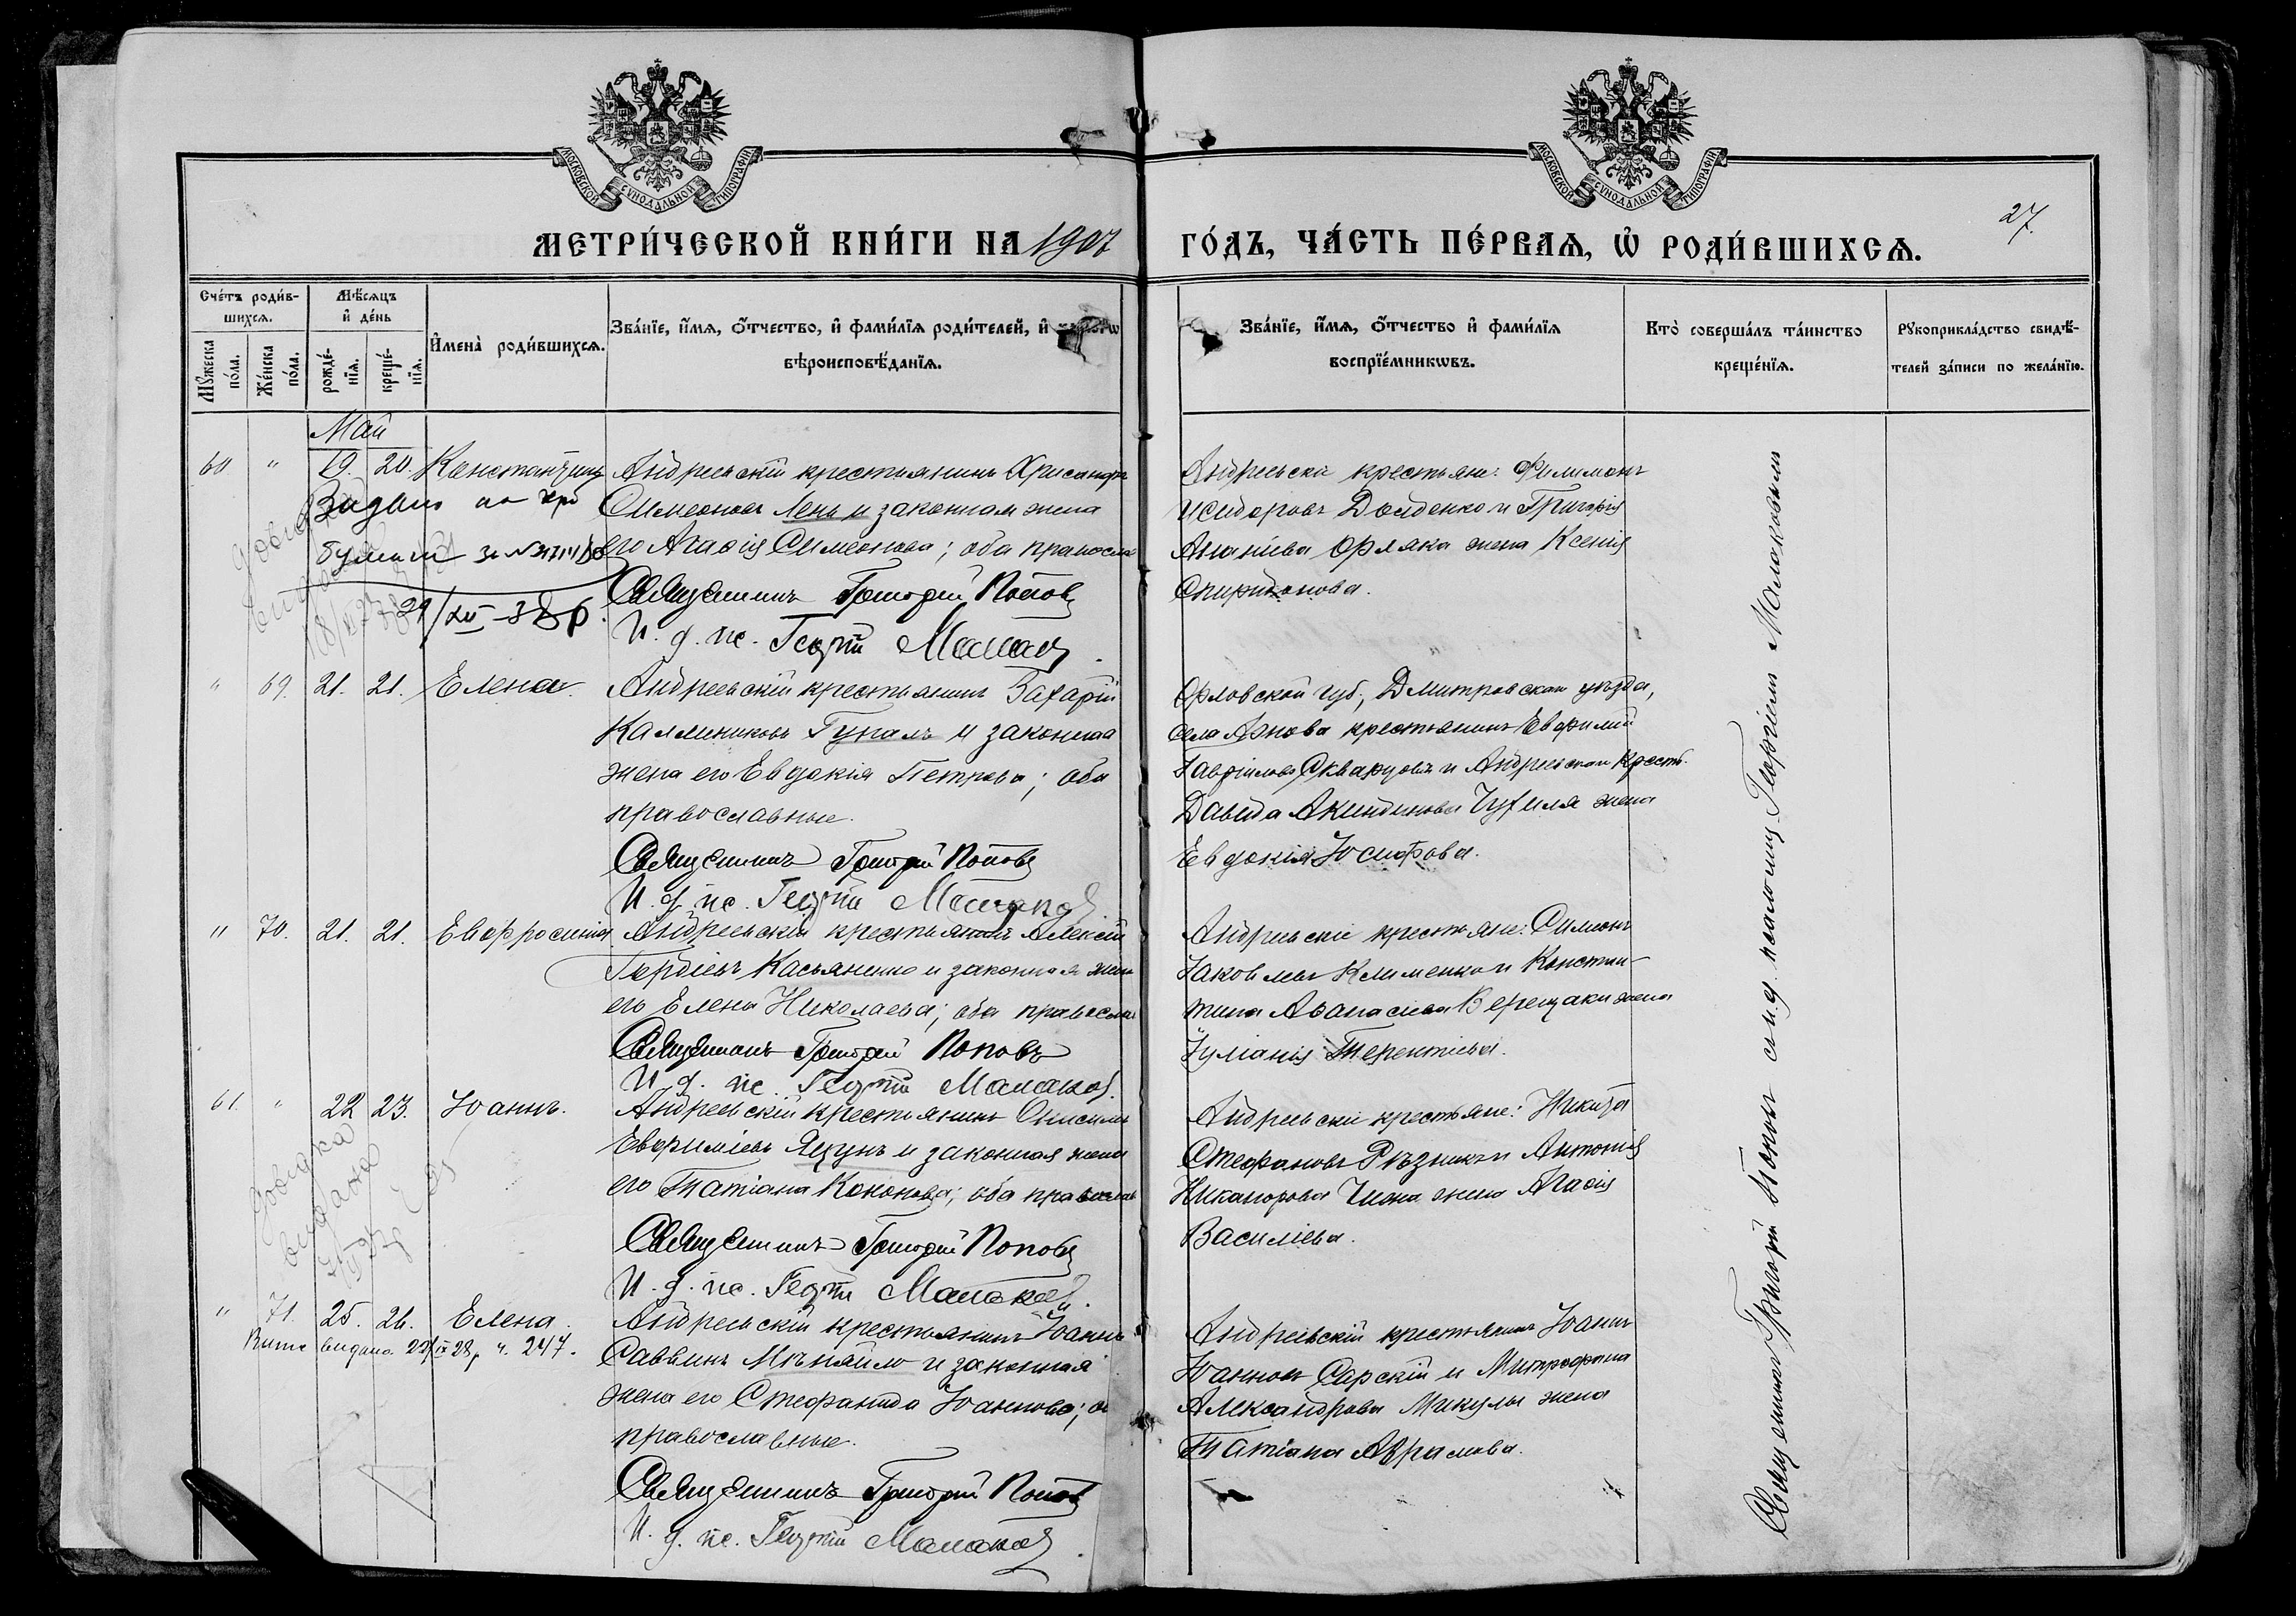 МОСКОВСКОЙ СѴНОДАЛЬНОЙ ТИПОГРАФІИ
МОСКОВСКОЙ СѴНОДАЛЬНОЙ ТИПОГРАФІИ
27.
МЕТРИ́ЧЕСКОЙ КНИ́ГИ НА 1907 ГО́ДЪ, ЧА́СТЬ ПЕ́РВАѦ, Ѡ҆ РОДИ́ВШИХСѦ.
Сче́тъ роди́в-
шихсѧ.
Мꙋжеска по́ла.
Же́нска по́ла.
Мѣ́сѧцъ
и҆ де́нь
рожде́-
нїѧ.
креще́-
нїѧ.
И҆мена̀ роди́вшихсѧ.
Зва́нїе, и҆́мѧ, ѻ҆́тчество, и҆ фами́лїѧ роди́телей, и҆
вѣроисповѣ́данїѧ.
Зва́нїе, и҆́мѧ, ѻ҆́тчество и҆ фами́лїѧ
воспрїе́мникѡвъ.
Кто̀ соверша́лъ та́инство
креще́нїѧ.
Рꙋкоприкла́дство свидѣ́-
телей за́писи по жела́нїю.
Май
60 " 19. 20. Константинъ Андреевскій крестьянинъ Хрисанфъ
Симеоновъ Лень и законная жена
его Агаѳія Симеонова; оба правосла
Священникъ Григорій Поповъ
И. д. пс. Георгій Малаков
29/XII-38 р.
Андреевскіе крестьяне: Филимонъ
Исидоровъ Дейденко и Григорія
Ананіева Орляка жена Ксенія
Спиридонова.
" 69. 21. 21. Елена. Андреевскій крестьянинъ Захарій
Каллиниковъ Гупалъ и законная
жена его Евдокія Петрова; оба
православные.
Священникъ Григорій Поповъ
И. д. пс. Георгій Малаков
Орловской губ., Дмитровскаго уѣзда,
села крестьянинъ Евфимій
Гавріиловъ Скварцовъ и Андреевскаго крест.
Давида Акиндинова жена
Евдокія Іосифова.
" 70. 21. 21. Евфросинія Андреевскій крестьянинъ Алексій
Гордіевъ Касьяненко и законная жена
его Елена Николаева; оба правосла
Священникъ Григорій Поповъ
И. д. пс. Георгій Малаков.
Андреевскіе крестьяне: Симеонъ
Іаковлевъ Клименко и Констан-
тина Аѳанасіева Верещаки жена
Іуліанія Терентіева.
61. " 22 23. Іоаннъ. Андреевскій крестьянинъ Онисимъ
Евфиміевъ Яцунъ и законная жена
его Татіана Кононова; оба православ
Священникъ Григорій Поповъ
И. д. пс. Георгій Малаков.
довідка
видана
Андреевскіе крестьяне: Никита
Стефановъ Рѣзникъ и Антонія
Никанорова жена Агаѳія
Василіева.
" 71. 25. 26. Елена. Андреевскій крестьянинъ Іоаннъ
видано 22/IX 28 р. ч. 247.
Саввинъ Мѣняйло и законная
жена его Стефанида Іоаннова; о
православные.
Священникъ Григорій Поповъ
И. д. пс. Георгій Малаков.
Андреевскій крестьянинъ Іоаннъ
Іоанновъ Сарскій и Митрофана
Александрова Микулы жена
Татіана Аврамова.
Священникъ Григорій Поповъ съ и. д. псаломщ. Георгіемъ Малаковымъ